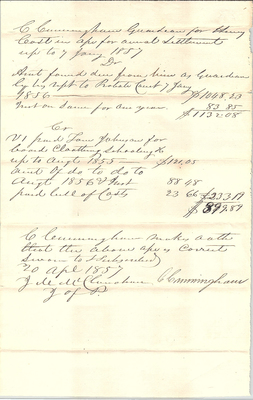 C Cunningham Guardian for Henry
in a/c for annual Settlement
up to 7 Jany 1857
Dr
Amt found due from him as Guardian
by his rept to Probate Court 7 Jany
1856 $1048.23
Int on Same for one year 83 85
$1132.08
Cr
paid Johnson for
board Cloathing Schooling &c
up to Augt 1855
amt of do to do to
Augt 1856 & Int 88 48
paid bill of Costs 23 66
C Cunningham makes oath
that the above a/c is Correct
Sworn to & Subscribed
20 Apl 1857
C Cunningham
J of P